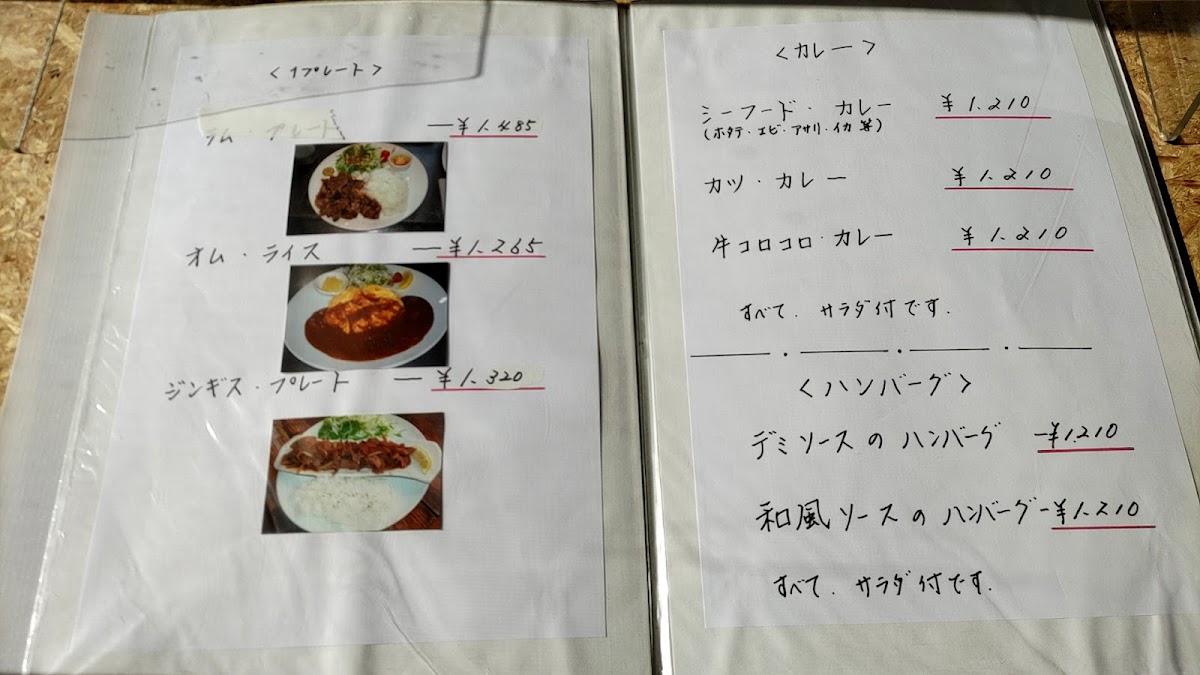 <1プレート>
ラム・プレート —¥1.485
オム・ライス —¥1.265
ジンギス・プレート — ¥1.320
<カレー>
シーフード・カレー ¥1.210
(ホタテ・エビ・アサリ・イカ等)
カツ・カレー ¥1.210
牛コロコロ・カレー ¥1.210
すべて、サラダ付です.
<ハンバーグ>
デミソースのハンバーグ —¥1.210
和風ソースのハンバーグ—¥1.210
すべて、サラダ付です.